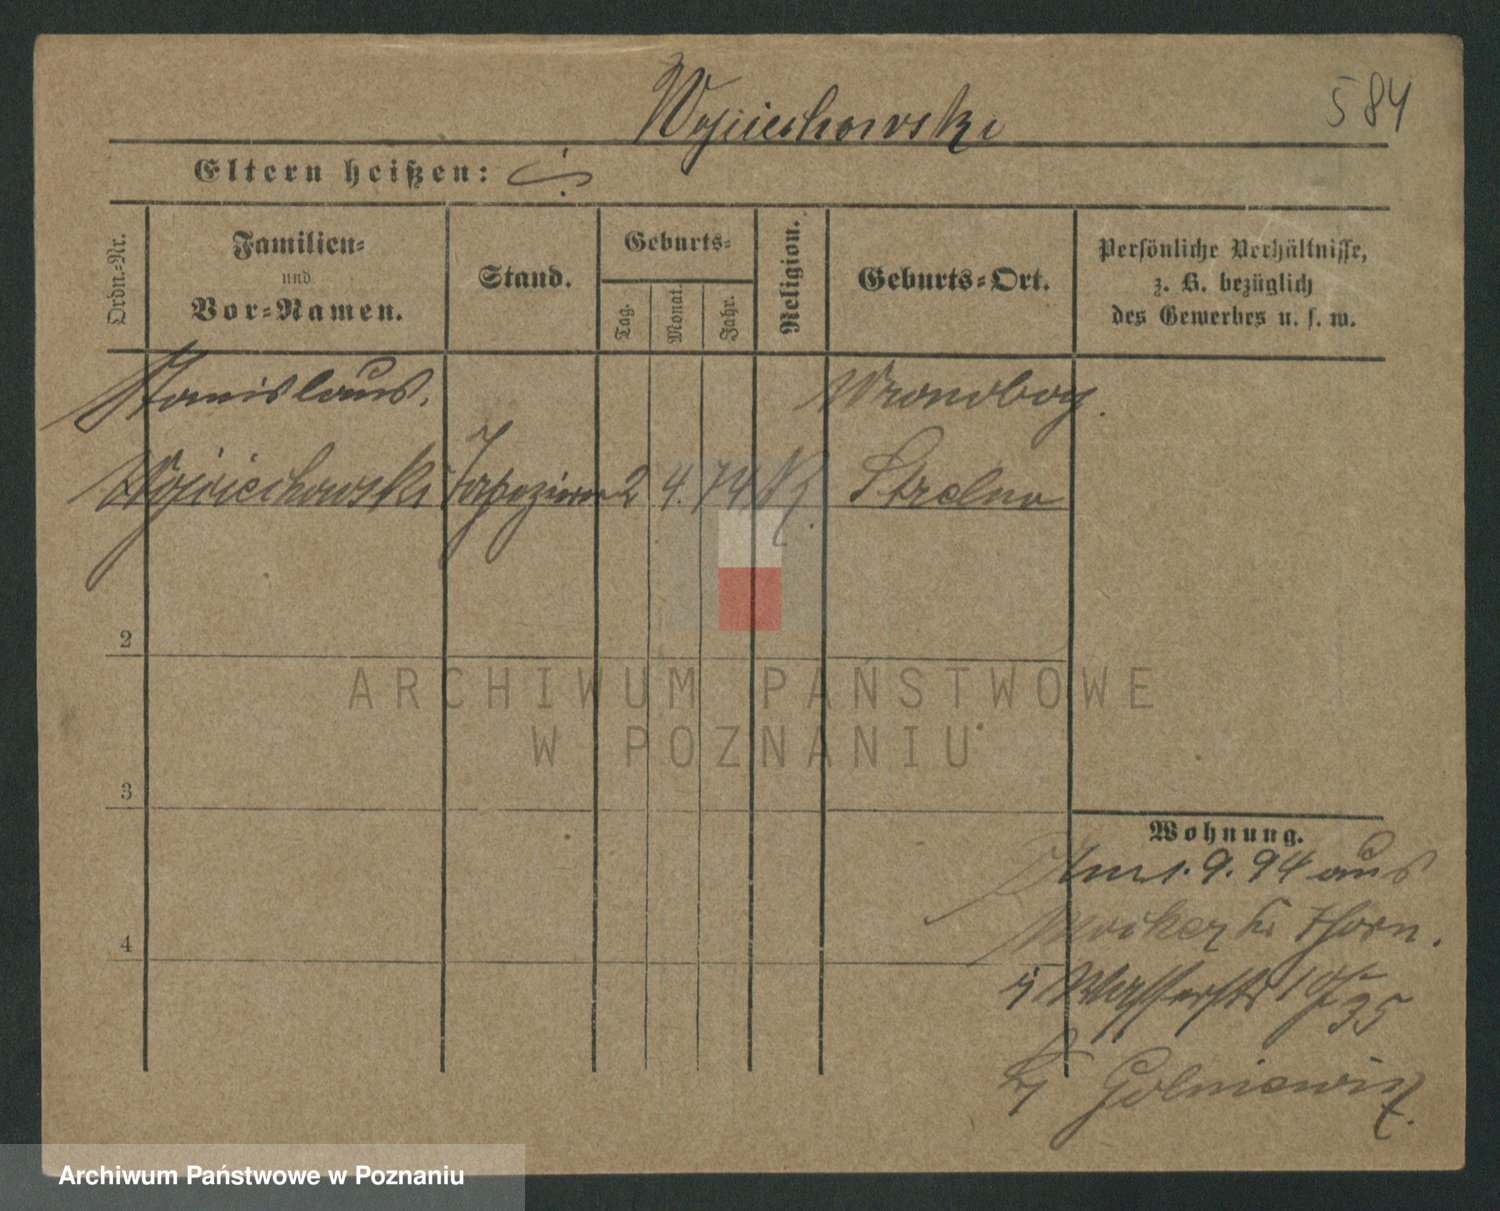 584
Wojciechowski
Eltern heißen:
Ordn.-Nr.
Familien-
und
Vor-Namen.
Stand.
Geburts-
Tag.
Monat.
Jahr.
Religion.
Geburts-Ort.
Persönliche Verhältnisse,
z. B. bezüglich
des Gewerbes u. s. w.
Stanislaus.
Wojciechowski Tapezierer 2 4. 74 K. Strelno
2
3
4
Wohnung.
1.9.94 aus
Mocker Thorn.
Wasserstr
35
ARCHIWUM PAŃSTWOWE
W POZNANIU
Archiwum Państwowe w Poznaniu